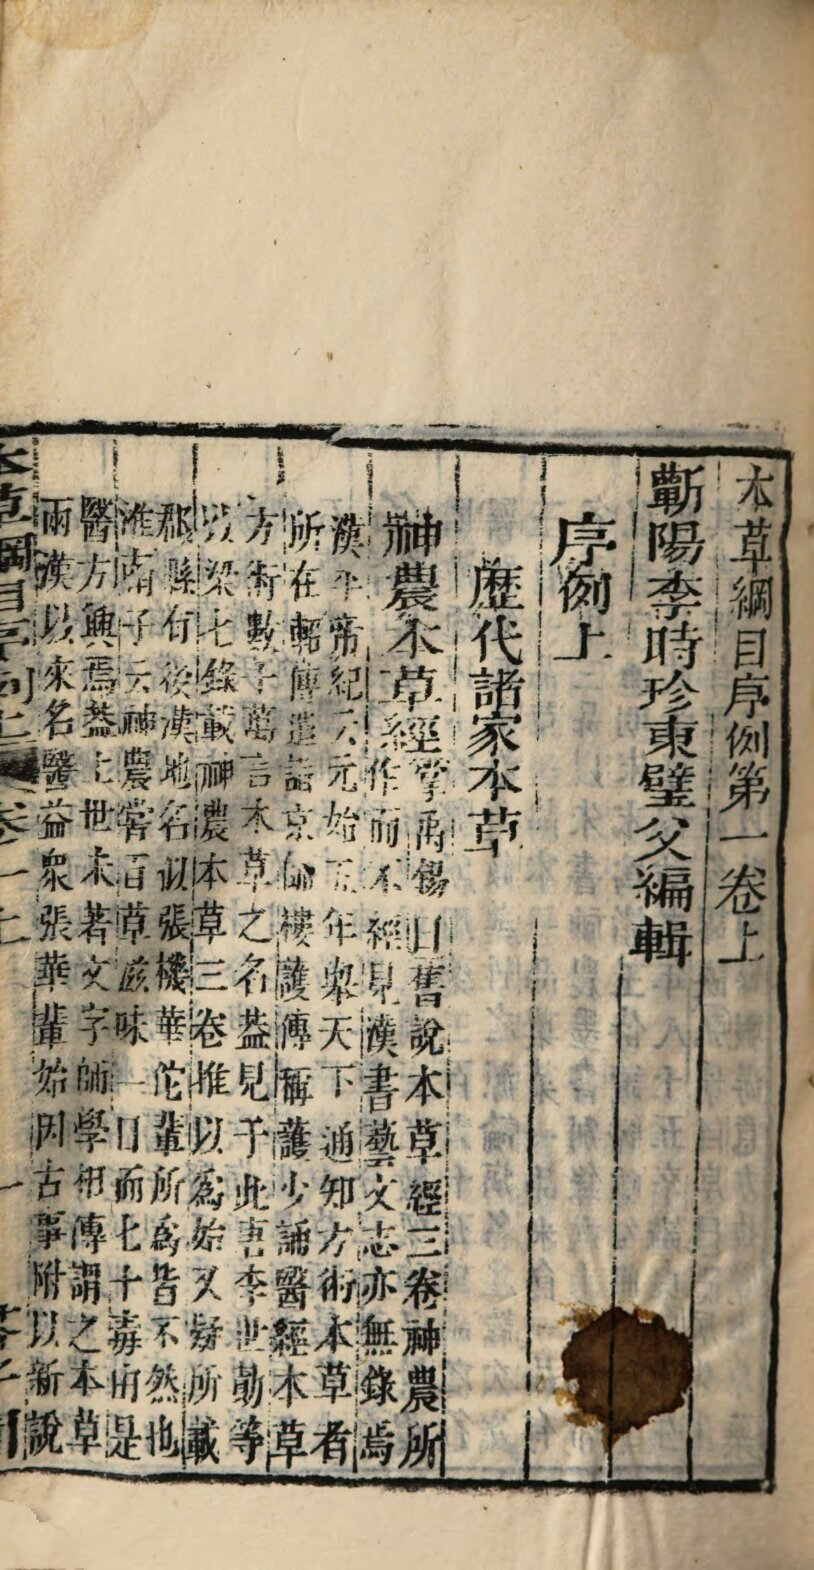 本草綱目序例第一卷上
蘄陽李時珍東璧父編輯
序例上
歷代諸家本草
神農本草經掌禹錫曰舊說本草經三卷神農所
作而不經見漢書藝文志亦無錄焉
漢平帝紀云元始五年舉天下通知方術本草者
所在軺傳遣詣京師樓護傳稱護少誦醫經本草
方術數十萬言本草之名葢見于此唐李世勣等
以梁七錄載神農本草三卷推以爲始又疑所載
郡縣有後漢地名似張機華佗輩所爲皆不然也
淮南子云神農嘗百草滋味一日而七十毒由是
醫方興焉葢上世未著文字師學相傳謂之本草
兩漢以來名醫益衆張華輩始因古事附以新說
本草綱目序例上 卷一上 一